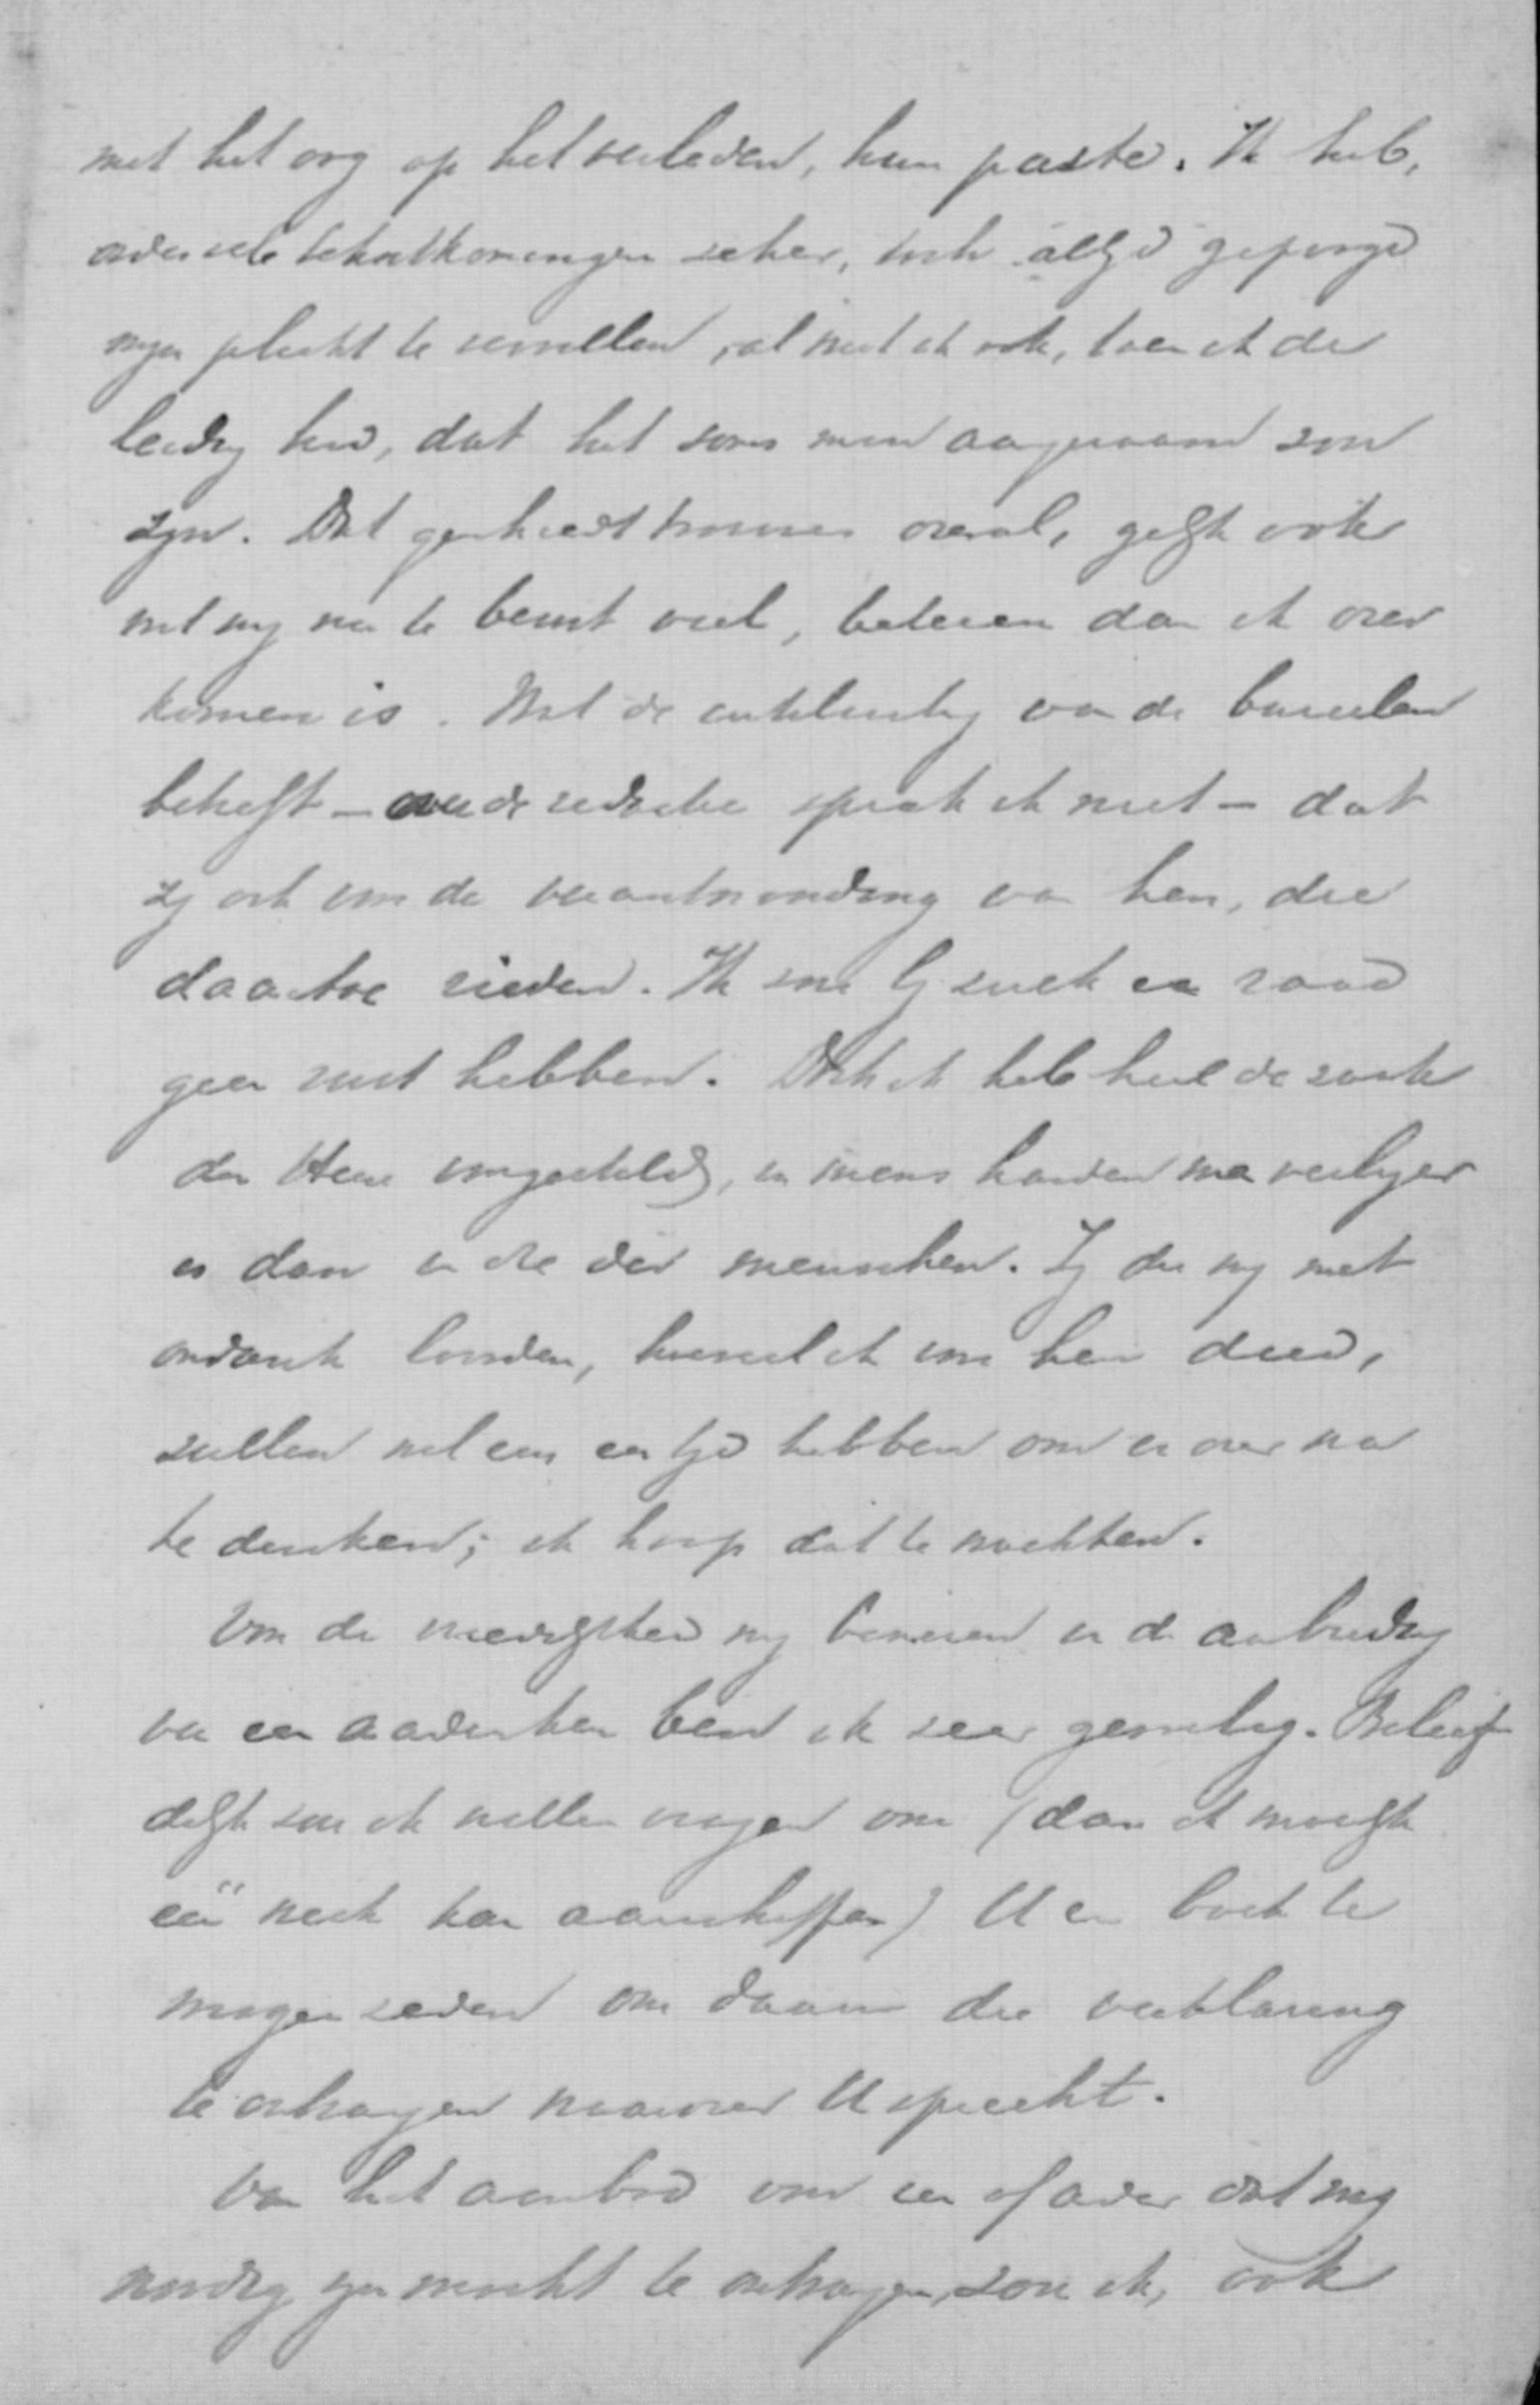 met het oog op het verleden, hun paste. Ik heb,
onder vele tekortkomingen zeker, toch altijd gepoogd
mijn plicht te vervullen, al wist ik ook, toen ik de
leiding had, dat het soms min aangenaam zou
zijn. Dat geschiedt trouwens overal,
met mij nu te beurt viel, beteren dan ik over
komen is. Wat de van de
betreft – over de redactie spreek ik niet – dat
zij ook voor de verantwoording van hen, die
daartoe rieden. Ik zou bij zulk een raad
geen rust hebben. Doch ik heb heel de zaak
den Heere voorgesteld, in wiens handen men veiliger
is dan in die der menschen. Zij die mij met
ondank loonden, hoewel ik voor hen deed,
zullen wel eens een tijd hebben om er over na
te denken; ik hoop dat te wachten.
Voor de mij bewezen in de aanbieding
van een aandenken ben ik zeer gevoelig. Beleef
delijk zou ik willen vragen om (daar ik moeilijk
één werk kan aanschaffen) U een boek te
mogen zenden om daarin die verklaring
te ontvangen waarover U spreekt.
Van het aanbod om een of ander dat mij
noodig zijn mocht te ontvangen, zou ik, ook